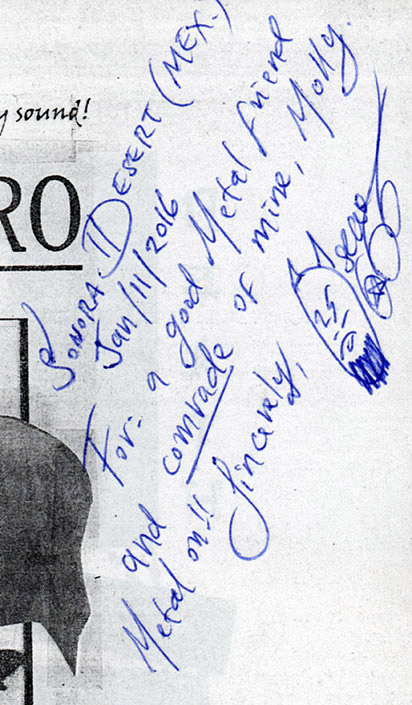 y sound!
RO
SONORA DESERT (MEX.)
Jan/11/2016
For a good Metal friend
and comrade of mine, Molly.
Metal on!! Sincerely,